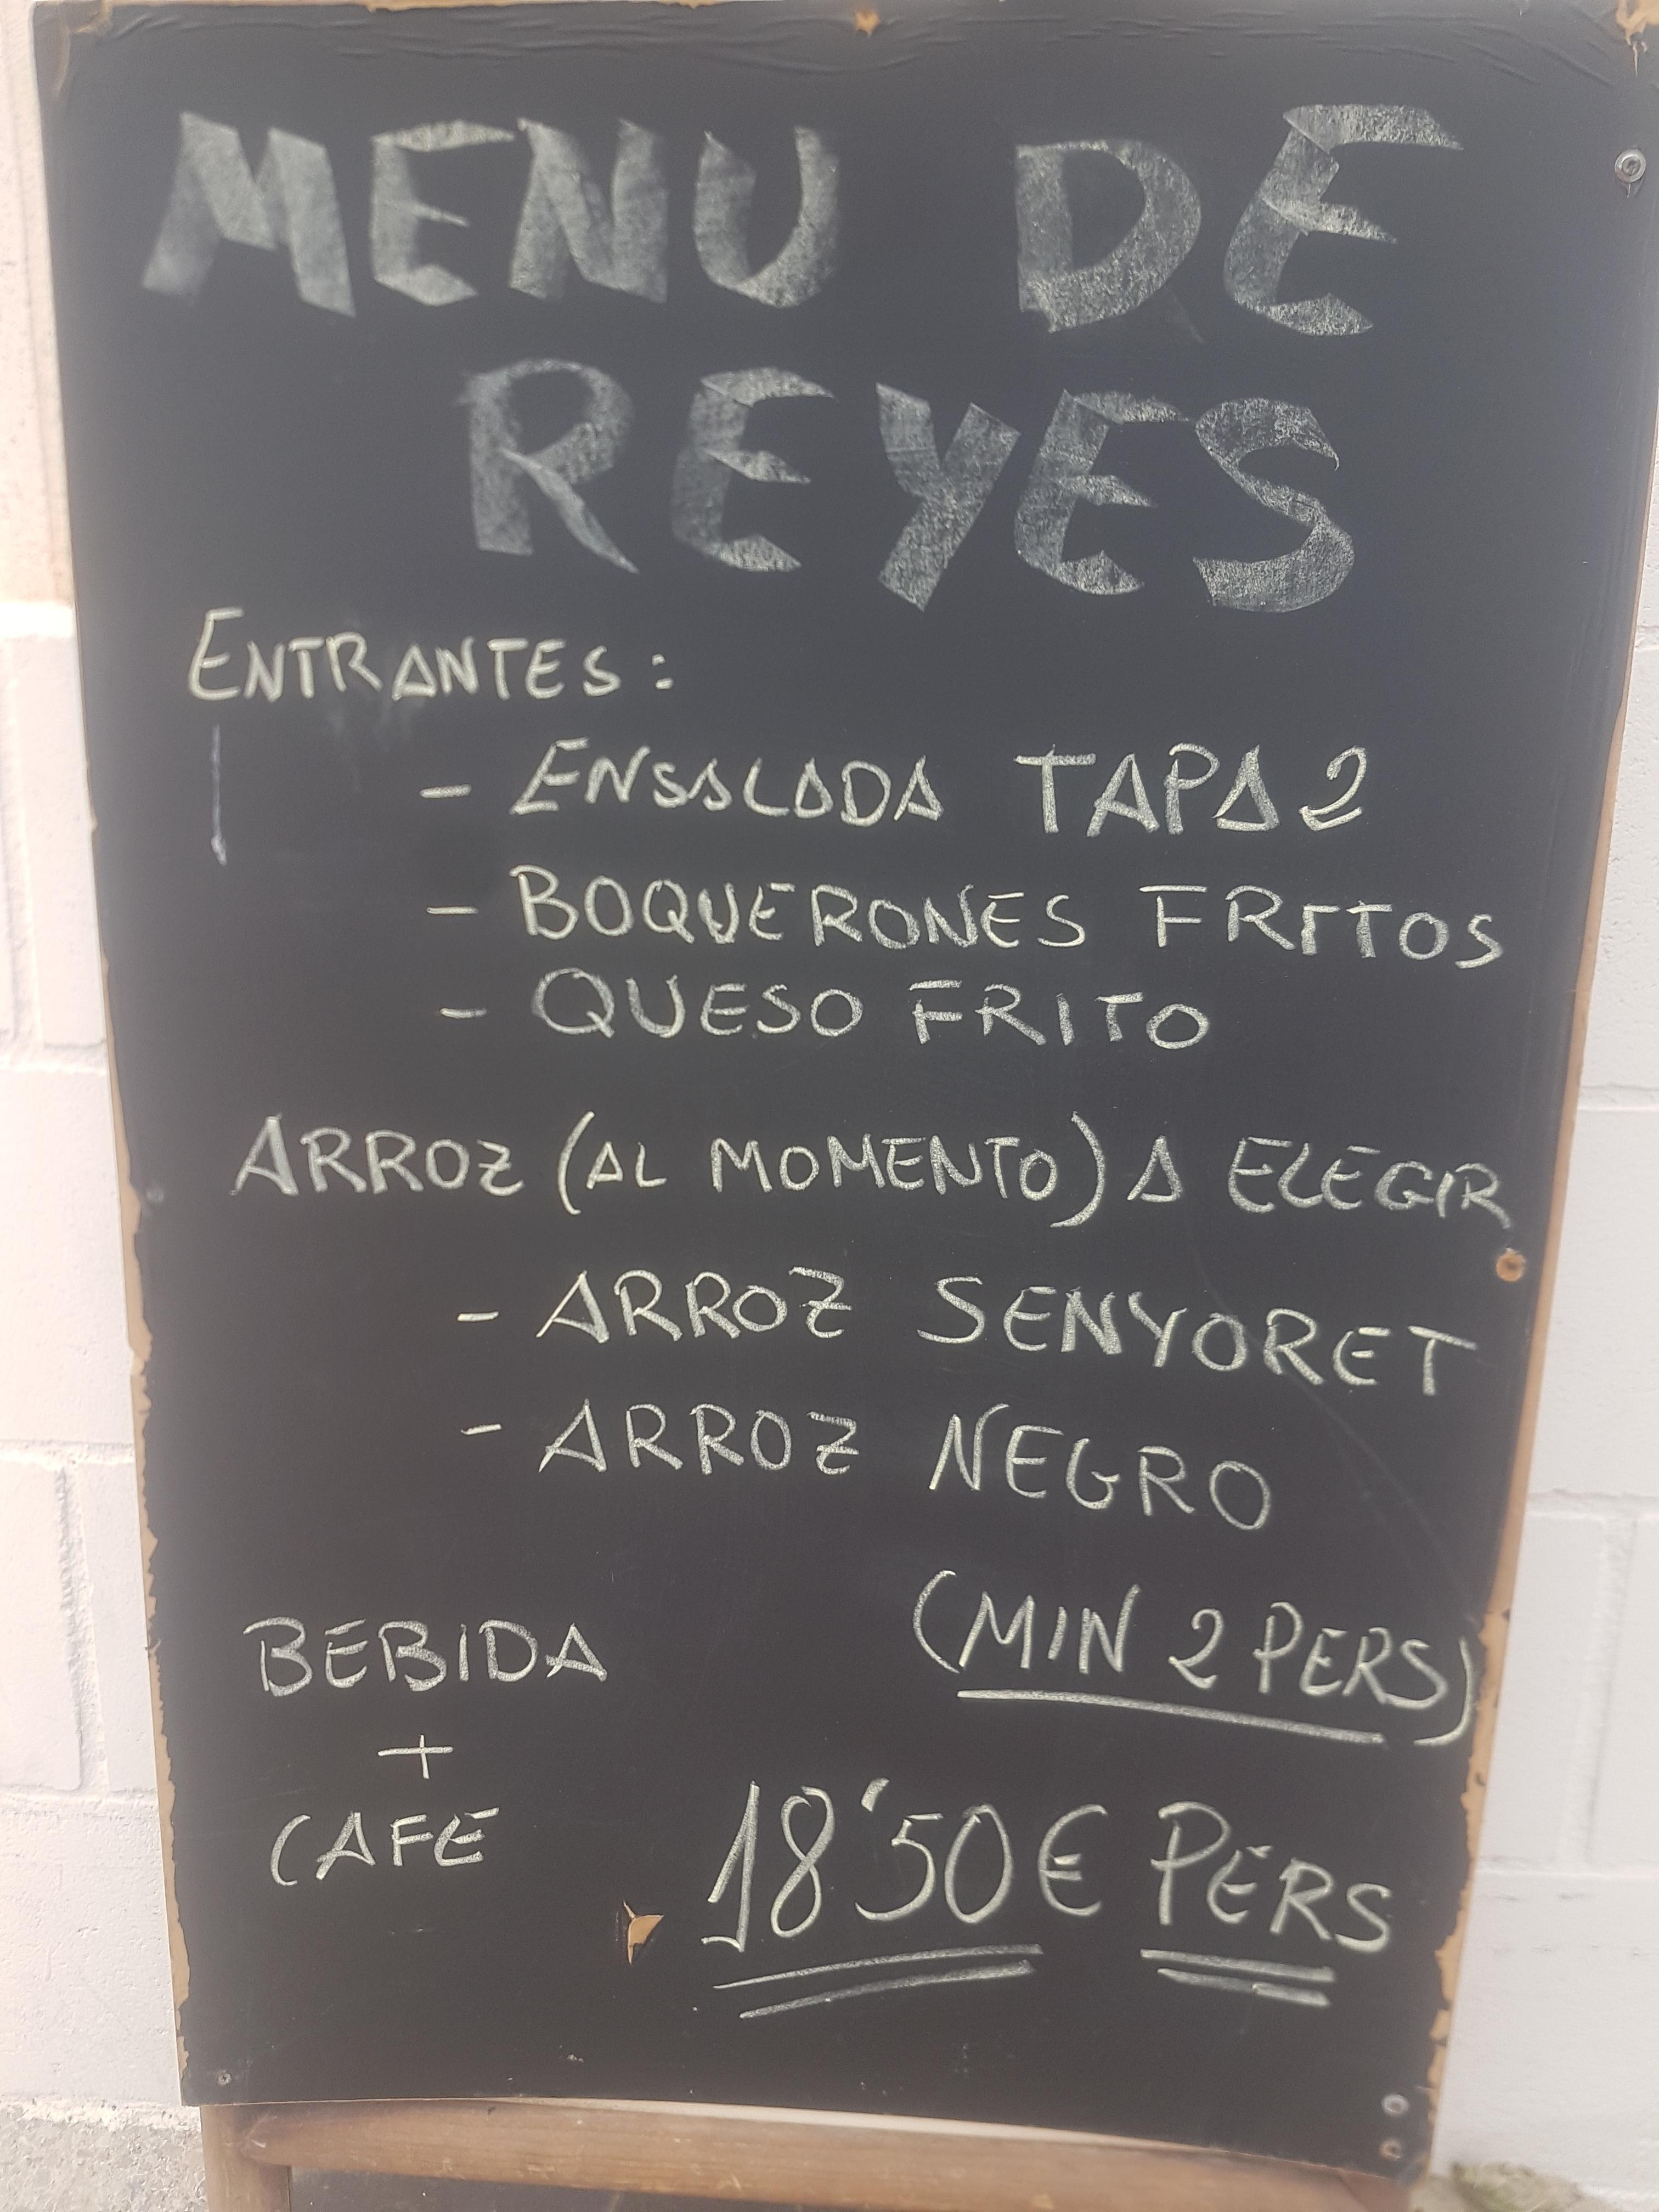 MENU DE
REYES
ENTRANTES:
- ENSALADA TAPA2
- BOQUERONES FRITOS
- QUESO FRITO
ARROZ (AL MOMENTO) A ELEGIR
- ARROZ SENYORET
- ARROZ NEGRO
(MIN 2 PERS)
BEBIDA
+
CAFE
18'50€ PERS